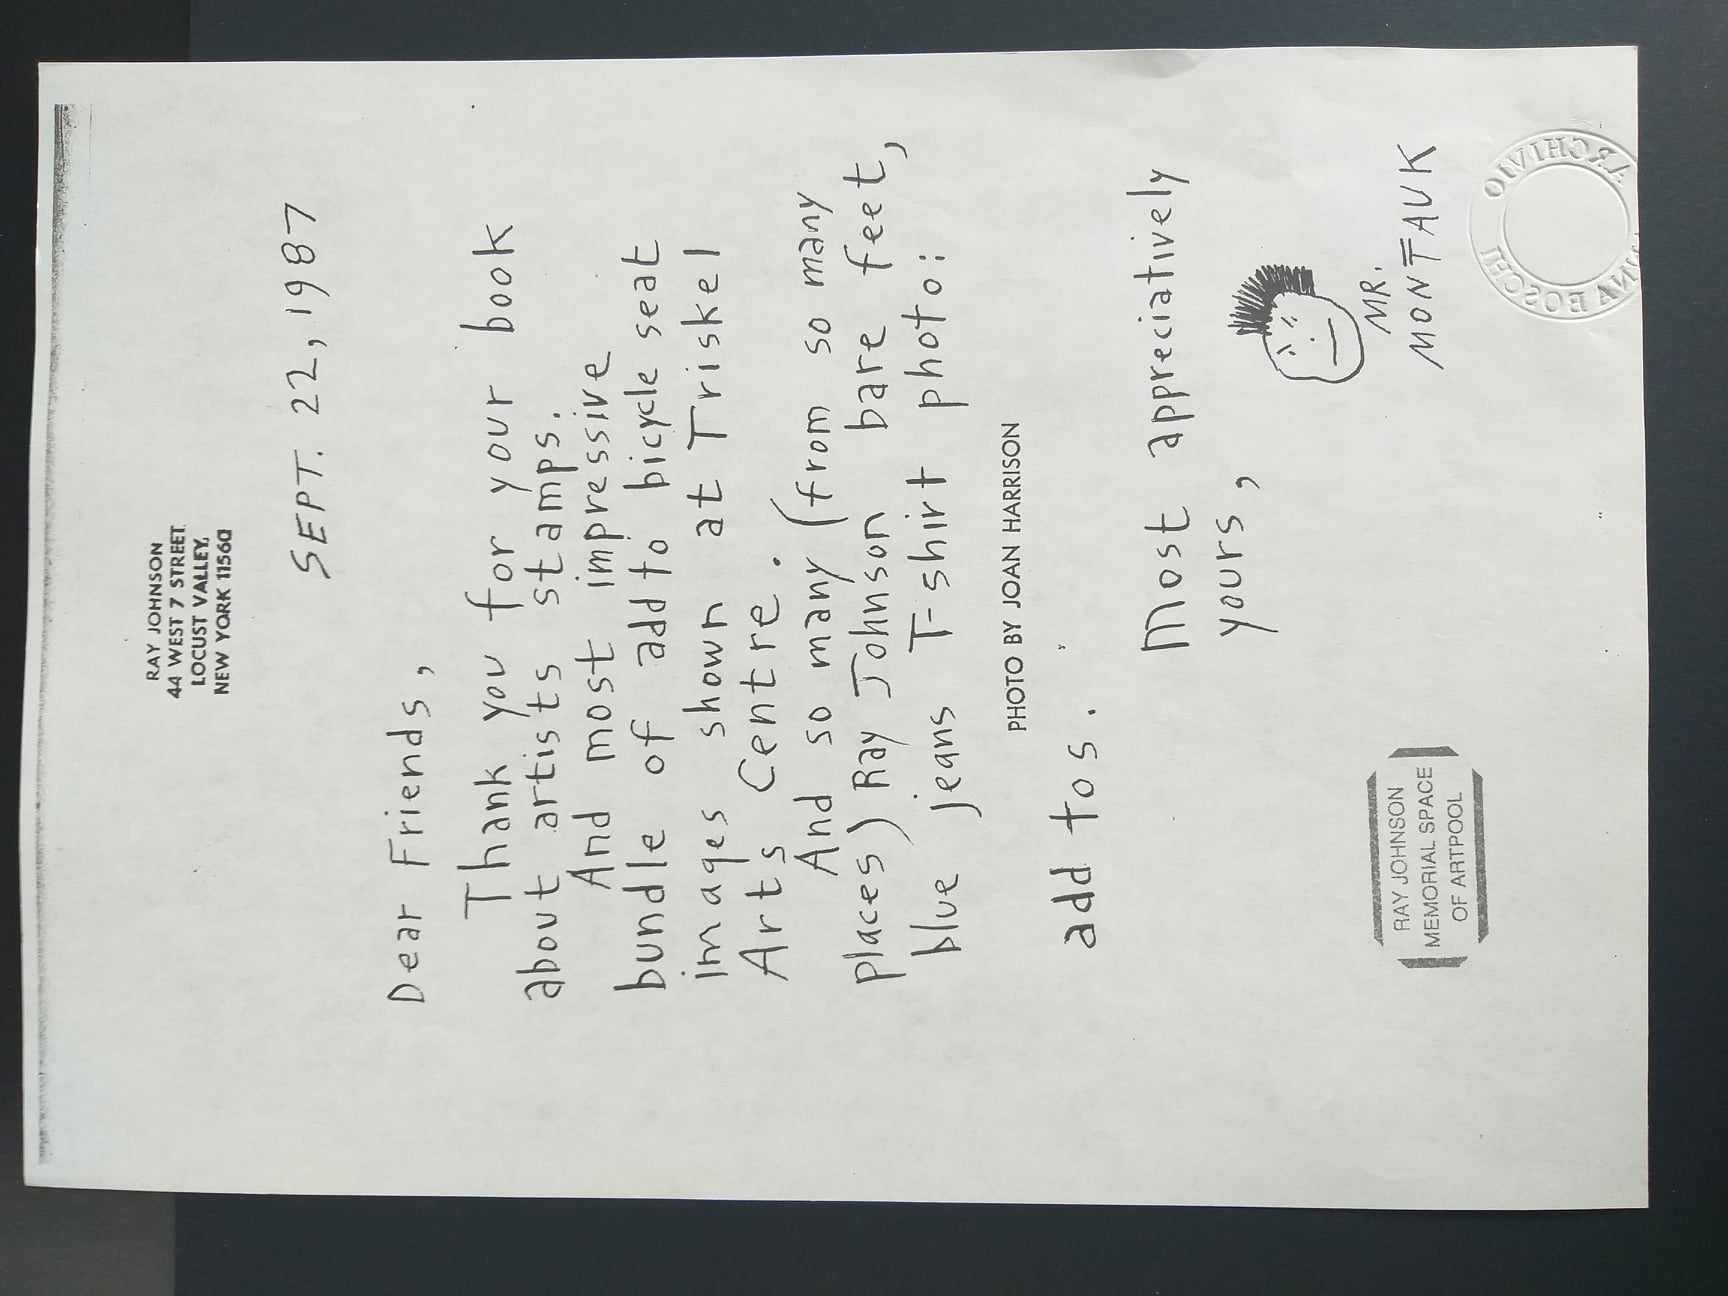 RAY JOHNSON
44 WEST 7 STREET
LOCUST VALLEY,
NEW YORK 11560
SEPT. 22, 1987
Dear Friends,
Thank you for your book
about artists stamps.
And most impressive
bundle of add to bicycle seat
images shown at Triskel
Arts Centre.
And so many (from so many
places) Ray Johnson bare feet,
blue jeans T-shirt photo:
PHOTO BY JOAN HARRISON
add tos.
Most appreciatively
yours,
MR.
MONTAUK
RAY JOHNSON
MEMORIAL SPACE
OF ARTPOOL
ARCHIVIO
BOSCHI